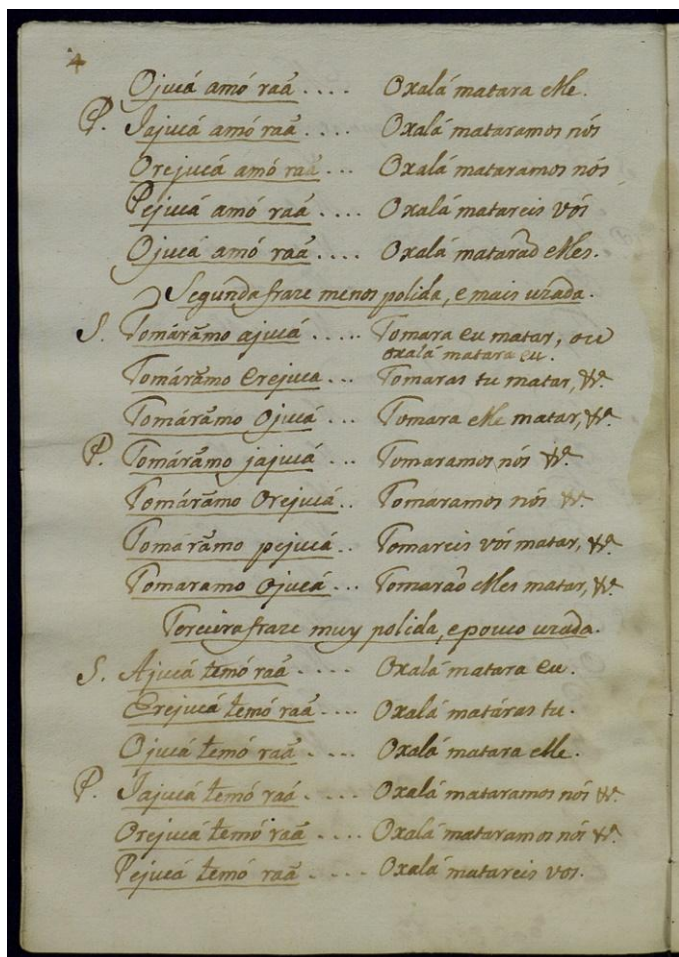 4
Ojucá amó raã .... Oxalá matara elle.
P. Jajucá amó raã .... Oxalá mataramos nós
Orejucá amó raã .... Oxalá mataramos nós
Pejucá amó raã .... Oxalá matareis vós
Ojucá amó raã .... Oxalá mataraõ elles.
Segunda fraze menos polida, e mais uzada.
S. Tomárãmo ajucá ..... Tomara eu matar, ou
oxalá matara eu.
Tomárãmo Erejuca ... Tomaras tu matar, &ª.
Tomárãmo Ojucá ... Tomara elle matar, &ª.
P. Tomárãmo jajucá ... Tomaramos nós &ª.
Tomárãmo Orejucá .. Tomáramos nós &ª.
Tomárãmo pejucá .. Tomareis vós matar, &ª.
Tomaramo Ojucá ... Tomaraõ elles matar, &ª.
Terceira fraze muy polida, e pouco uzada.
S. Ajucá temó raã .... Oxalá matara eu.
Erejucá temó raã .... Oxalá matáras tu.
Ojucá temó raã .... Oxalá matara elle.
P. Jajucá temó raá .... Oxalá mataramos nós &ª.
Orejucá temó raã .... Oxalá mataramos nós &ª.
Pejucá temó raã .... Oxalá matareis vos.